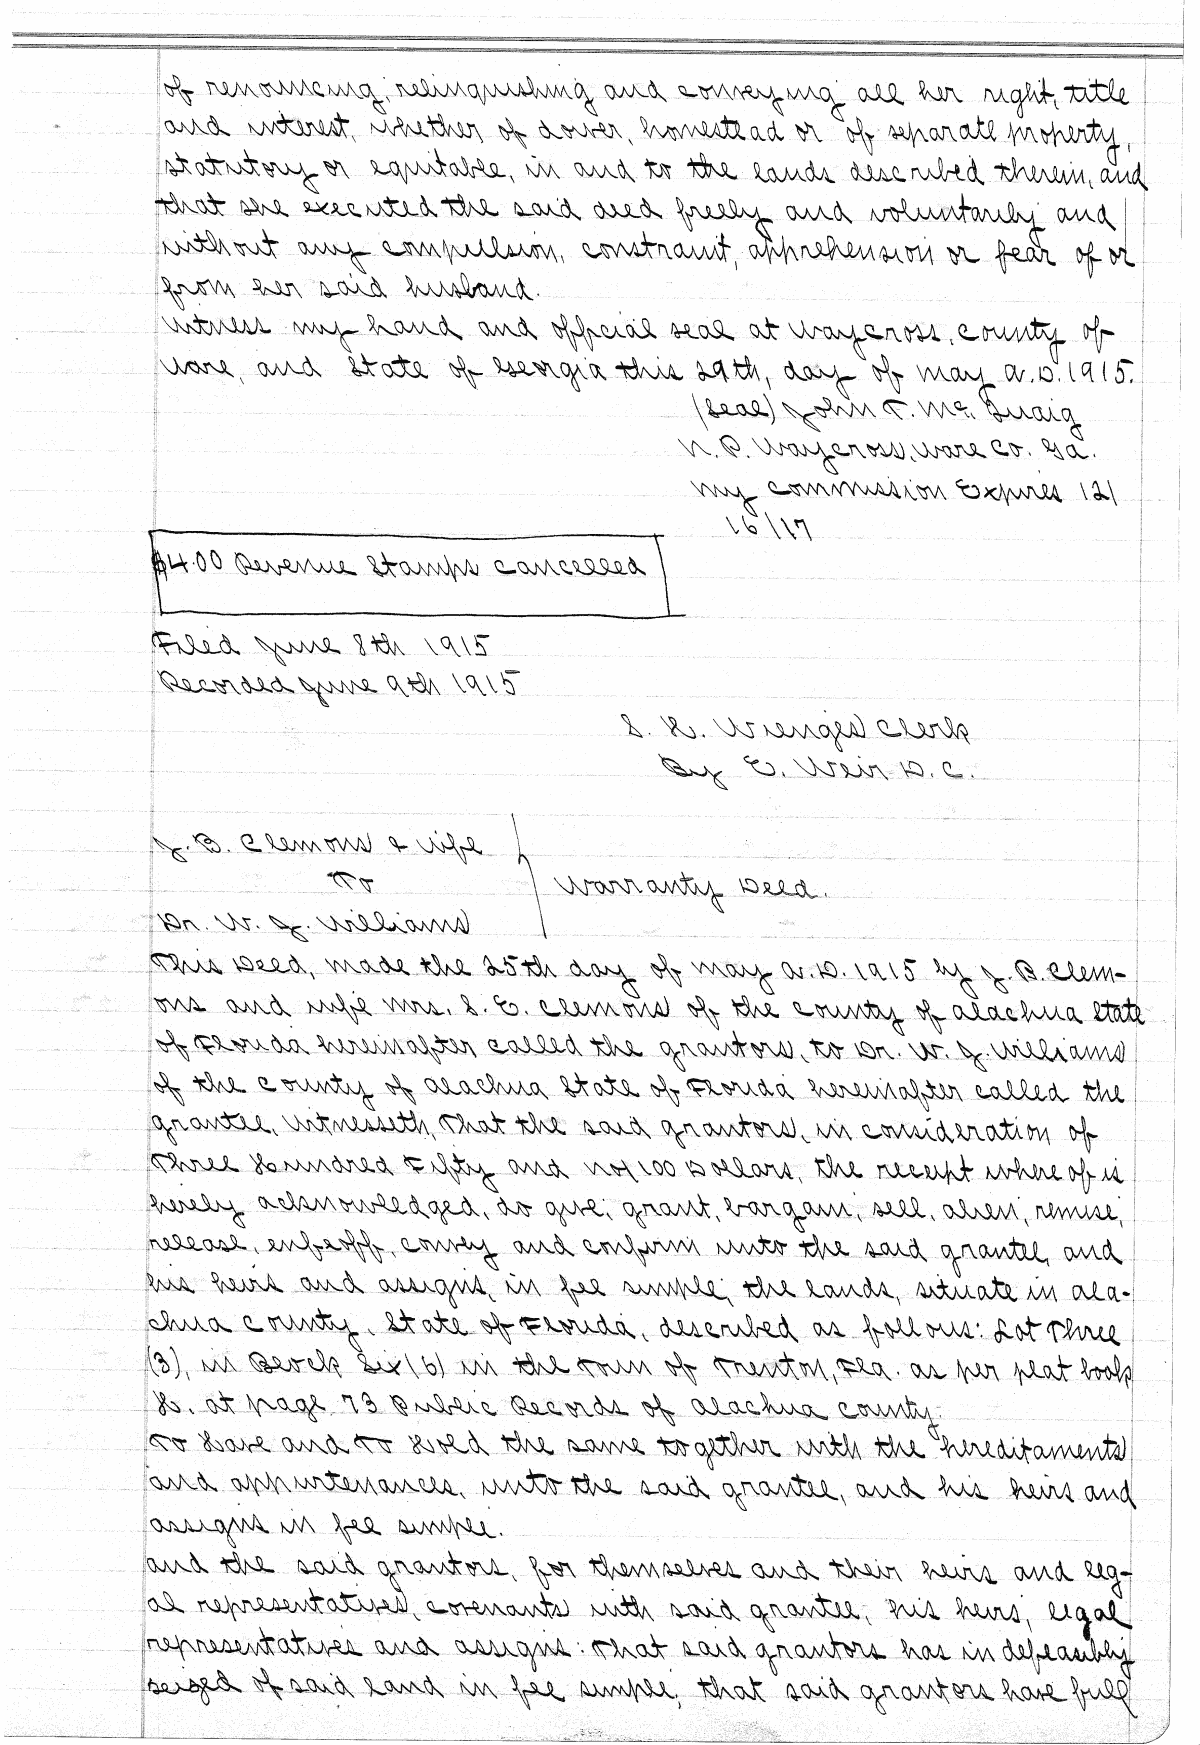 of renouncing, relinquishing and conveying all her right, title
and interest, whether of dower, homestead or of separate property,
statutory or equitable, in and to the lands described therein, and
that she executed the said deed freely and voluntarily and
without any compulsion, constraint, apprehension or fear of or
from her said husband.
Witness my hand and official seal at Waycross, County of
Ware, and State of Georgia this 29th, day of May A.D. 1915.
(Seal) John T. Mc. Quaig
N. P. Waycross, Ware Co. Ga.
My commission Expires 12/
16/17
$4.00 Revenue Stamps Cancelled
Filed June 8th 1915
Recorded June 9th 1915
S. H. Wienges Clerk
By E. Weir D. C.
J. B. Clemons & wife
To
Warranty Deed.
Dr. W. J. Williams
This Deed, made the 25th day of May A.D. 1915 by J. B. Clem-
ons and wife Mrs. S. E. Clemons of the County of Alachua State
of Florida hereinafter called the grantors, to Dr. W. J. Williams
of the County of Alachua State of Florida hereinafter called the
grantee, Witnesseth, That the said grantors, in consideration of
Three Hundred Fifty and no/100 Dollars, the receipt where of is
hereby acknowledged, do give, grant, bargain, sell, alien, remise,
release, enfeoff, convey and confirm unto the said grantee, and
his heirs and assigns, in fee simple, the lands, situate in Ala-
chua County, State of Florida, described as follows: Lot Three
(3), in Block Six (6) in the Town of Trenton, Fla. as per plat book
H. at page 73 Public Records of Alachua County.
To Have and To Hold the same together with the hereditaments
and appurtenances, unto the said grantee, and his heirs and
assigns in fee simple.
And the said grantors, for themselves and their heirs and leg-
al representatives, covenants with said grantee, his heirs, legal
representatives and assigns: That said grantors has in defeasibly
seized of said land in fee simple, that said grantors have full